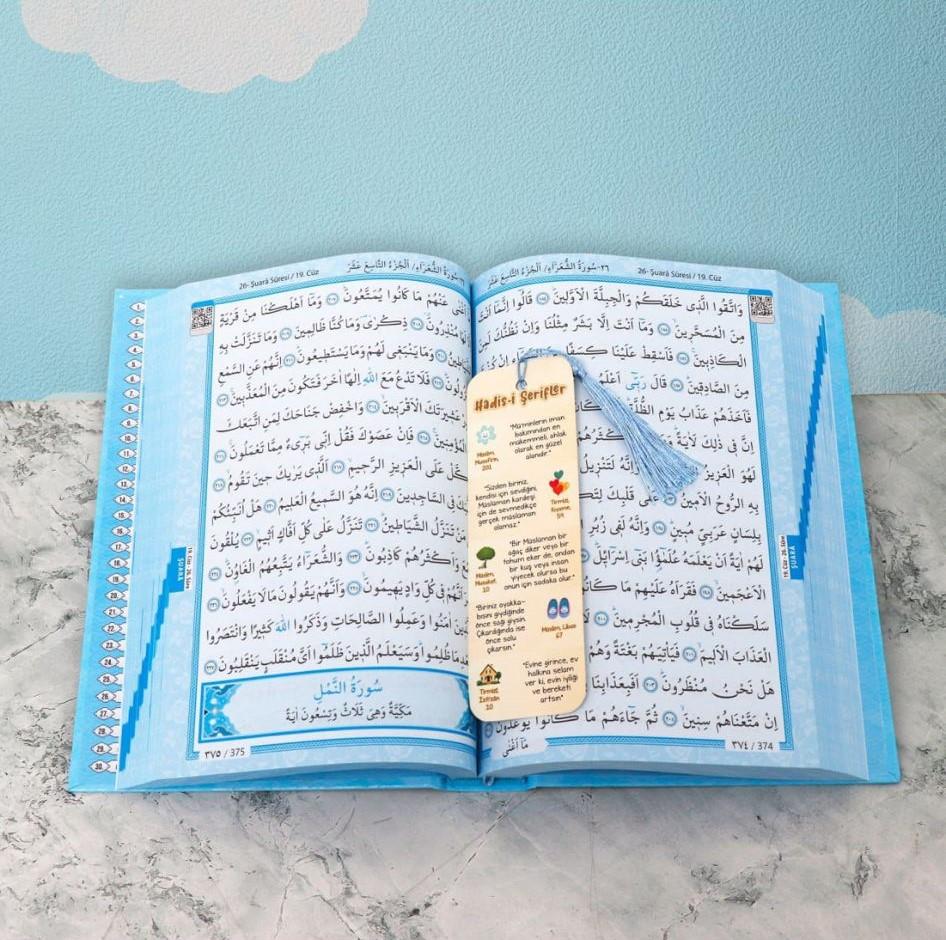 26- Şuarâ Sûresi / 19. Cüz
٢٦-سُورَةُ الشُّعَرَاءِ/ اَلْجُزْءُ التَّاسِعَ عَشَرَ
وَاتَّقُوا الَّذِى خَلَقَكُمْ وَالْجِبِلَّةَ الْاَوَّلِينَ ﴿١٨٤﴾ قَالُوا اِنَّمَا اَنْتَ
مِنَ الْمُسَحَّرِينَ ﴿١٨٥﴾ وَمَا اَنْتَ اِلَّا بَشَرٌ مِثْلُنَا وَاِنْ نَظُنُّكَ لَمِنَ
الْكَاذِبِينَ ﴿١٨٦﴾ فَاَسْقِطْ عَلَيْنَا كِسَفًا
مِنَ الصَّادِقِينَ ﴿١٨٧﴾ قَالَ رَبِّى اَعْلَمُ
فَاَخَذَهُمْ عَذَابُ يَوْمِ الظُّلَّةِ
اِنَّ فِى ذٰلِكَ لَاٰيَةً
لَهُوَ الْعَزِيزُ وَاِنَّهُ لَتَنْزِيلُ
بِهِ الرُّوحُ الْاَمِينُ ﴿١٩٣﴾ عَلٰى قَلْبِكَ
بِلِسَانٍ عَرَبِىٍّ مُبِينٍ ﴿١٩٥﴾ وَاِنَّهُ لَفِى زُبُرِ
لَهُمْ اٰيَةً اَنْ يَعْلَمَهُ عُلَمٰٓؤُا بَنِى اِسْرَائِلَ
الْاَعْجَمِينَ ﴿١٩٨﴾ فَقَرَاَهُ عَلَيْهِمْ مَا
سَلَكْنَاهُ فِى قُلُوبِ الْمُجْرِمِينَ
الْعَذَابَ الْاَلِيمَ ﴿٢٠١﴾ فَيَاْتِيَهُمْ بَغْتَةً وَهُمْ
هَلْ نَحْنُ مُنْظَرُونَ ﴿٢٠٣﴾ اَفَبِعَذَابِنَا
اِنْ مَتَّعْنَاهُمْ سِنِينَ ﴿٢٠٥﴾ ثُمَّ جَاءَهُمْ مَا كَانُوا يُوعَدُونَ
مَا اَغْنٰى
٣٧٤ / 374
19. Cüz 26. Sûre
ŞUARÂ
Hadis-i Şerifler
"Mü'minlerin iman
bakımından en
mükemmeli, ahlak
olarak en güzel
olanıdır."
Müslim,
201
"Sizden biriniz,
kendisi için sevdiğini
Müslüman kardeşi
için de sevmedikçe
gerçek müslüman
olamaz."
Tirmizi,
Kıyame,
59
"Bir Müslüman bir
ağaç diker veya bir
tohum eker de, ondan
bir kuş veya insan
yiyecek olursa bu
onun için sadaka olur."
Müslim,
Musakat,
10
"Biriniz ayakka-
bısını giydiğinde
önce sağı giysin.
Çıkardığında ise
önce solu
çıkarsın."
Müslim, Libas
67
"Evine girince, ev
halkına selam
ver ki, evin iyiliği
ve bereketi
artsın."
Tirmizi,
İsti'zân
10
26- Şuarâ Sûresi / 19. Cüz
٢٦-سُورَةُ الشُّعَرَاءِ/ اَلْجُزْءُ التَّاسِعَ عَشَرَ
عَنْهُمْ مَا كَانُوا يُمَتَّعُونَ ﴿٢٠٧﴾ وَمَا اَهْلَكْنَا مِنْ قَرْيَةٍ
مُنْذِرُونَ ﴿٢٠٨﴾ ذِكْرٰى وَمَا كُنَّا ظَالِمِينَ ﴿٢٠٩﴾ وَمَا تَنَزَّلَتْ بِهِ
وَمَا يَنْبَغِى لَهُمْ وَمَا يَسْتَطِيعُونَ ﴿٢١١﴾ اِنَّهُمْ عَنِ السَّمْعِ
فَلَا تَدْعُ مَعَ اللّٰهِ اِلٰهًا اٰخَرَ فَتَكُونَ مِنَ الْمُعَذَّبِينَ ﴿٢١٣﴾
عَشِيرَتَكَ الْاَقْرَبِينَ ﴿٢١٤﴾ وَاخْفِضْ جَنَاحَكَ لِمَنِ اتَّبَعَكَ
الْمُؤْمِنِينَ ﴿٢١٥﴾ فَاِنْ عَصَوْكَ فَقُلْ اِنِّى بَرِىءٌ مِمَّا تَعْمَلُونَ ﴿٢١٦﴾
عَلَى الْعَزِيزِ الرَّحِيمِ ﴿٢١٧﴾ اَلَّذِى يَرٰيكَ حِينَ تَقُومُ ﴿٢١٨﴾
فِى السَّاجِدِينَ ﴿٢١٩﴾ اِنَّهُ هُوَ السَّمِيعُ الْعَلِيمُ ﴿٢٢٠﴾ هَلْ اُنَبِّئُكُمْ
تَنَزَّلُ الشَّيَاطِينُ ﴿٢٢١﴾ تَنَزَّلُ عَلٰى كُلِّ اَفَّاكٍ اَثِيمٍ ﴿٢٢٢﴾ يُلْقُونَ
وَاَكْثَرُهُمْ كَاذِبُونَ ﴿٢٢٣﴾ وَالشُّعَرَاءُ يَتَّبِعُهُمُ الْغَاوُنَ ﴿٢٢٤﴾
اَنَّهُمْ فِى كُلِّ وَادٍ يَهِيمُونَ ﴿٢٢٥﴾ وَاَنَّهُمْ يَقُولُونَ مَا لَا يَفْعَلُونَ ﴿٢٢٦﴾
اٰمَنُوا وَعَمِلُوا الصَّالِحَاتِ وَذَكَرُوا اللّٰهَ كَثِيرًا وَانْتَصَرُوا
مَا ظُلِمُوا وَسَيَعْلَمُ الَّذِينَ ظَلَمُوا اَىَّ مُنْقَلَبٍ يَنْقَلِبُونَ ﴿٢٢٧﴾
سُورَةُ النَّمْلِ
مَكِّيَّةٌ وَهِىَ ثَلَاثٌ وَتِسْعُونَ اٰيَةً
٣٧٥ / 375
19. Cüz 26. Sûre
ŞUARÂ
1.
2.
3.
4.
5.
6.
7.
8.
9.
10.
11.
12.
13.
14.
15.
16.
17.
18.
19.
20.
21.
22.
23.
24.
25.
26.
27.
28.
29.
30.